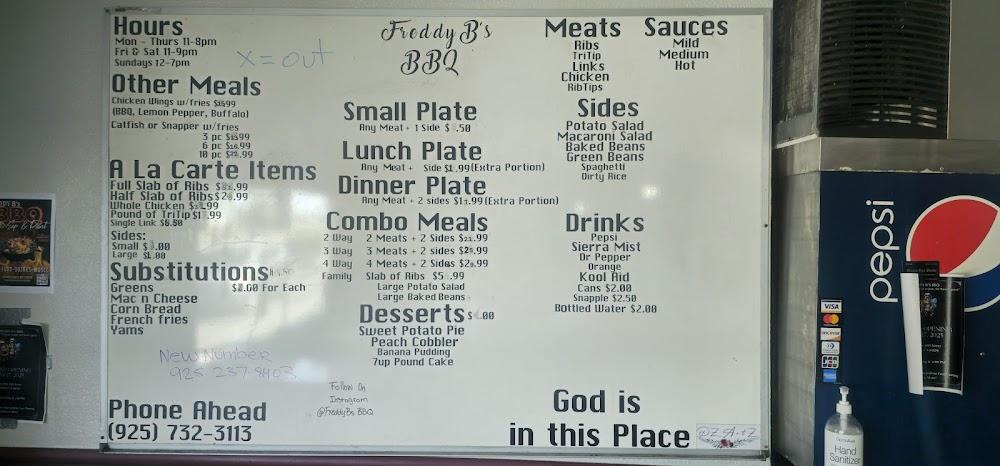 Hours
Mon - Thurs 11-8pm
Fri & Sat 11-9pm
Sundays 12-7pm
x = out
Other Meals
Chicken Wings w/fries
(BBQ, Lemon Pepper, Buffalo)
Catfish or Snapper w/fries
3 pc
6 pc
10 pc
A La Carte Items
Full Slab of Ribs
Half Slab of Ribs
Whole Chicken
Pound of TriTip
Single Link
Sides:
Small
Large
Substitutions
Greens For Each
Mac n Cheese
Corn Bread
French fries
Yams
New Number
925 237-8403
Phone Ahead
(925) 732-3113
Freddy B's
BBQ
Small Plate
Any Meat + 1 Side
Lunch Plate
Any Meat + Side (Extra Portion)
Dinner Plate
Any Meat + 2 sides (Extra Portion)
Combo Meals
2 Way 2 Meats + 2 Sides
3 Way 3 Meats + 2 sides
4 Way 4 Meats + 2 Sides
Family Slab of Ribs
Large Potato Salad
Large Baked Beans
Desserts
Sweet Potato Pie
Peach Cobbler
Banana Pudding
7up Pound Cake
Follow On
Instagram
@FreddyBs BBQ
Meats
Ribs
TriTip
Links
Chicken
RibTips
Sauces
Mild
Medium
Hot
Sides
Potato Salad
Macaroni Salad
Baked Beans
Green Beans
Spaghetti
Dirty Rice
Drinks
Pepsi
Sierra Mist
Dr Pepper
Orange
Kool Aid
Cans $2.00
Snapple $2.50
Bottled Water $2.00
God is
in this Place
pepsi
VISA
DISCOVER
JCB
Hand
Sanitizer
BBQ